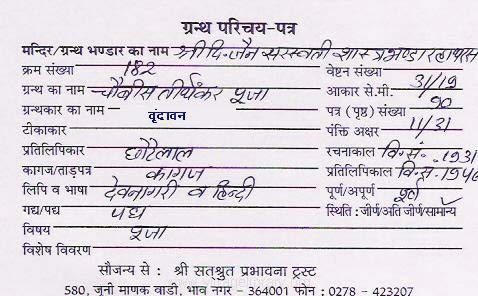 ग्रन्थ परिचय-पत्र
मन्दिर/ग्रन्थ भण्डार का नाम श्री दि. जैन सरस्वती शास्त्रभण्डार
क्रम संख्या 182 वेष्टन संख्या
ग्रन्थ का नाम चौबीस तीर्थंकर पूजा आकार से.मी. 31/19
ग्रन्थकार का नाम वृंदावन पत्र (पृष्ठ) संख्या 90
टीकाकार पंक्ति अक्षर 11/31
प्रतिलिपिकार छोटेलाल रचनाकाल वि.सं. 1931
कागज/ताड़पत्र कागज प्रतिलिपिकाल वि.स.
लिपि व भाषा देवनागरी व हिन्दी पूर्ण/अपूर्ण पूर्ण
गद्य/पद्य पद्य स्थिति : जीर्ण/अति जीर्ण/सामान्य
विषय पूजा
विशेष विवरण
सौजन्य से : श्री सत्श्रुत प्रभावना ट्रस्ट
580, जुनी माणक वाडी, भाव नगर – 364001 फोन : 0278 – 423207